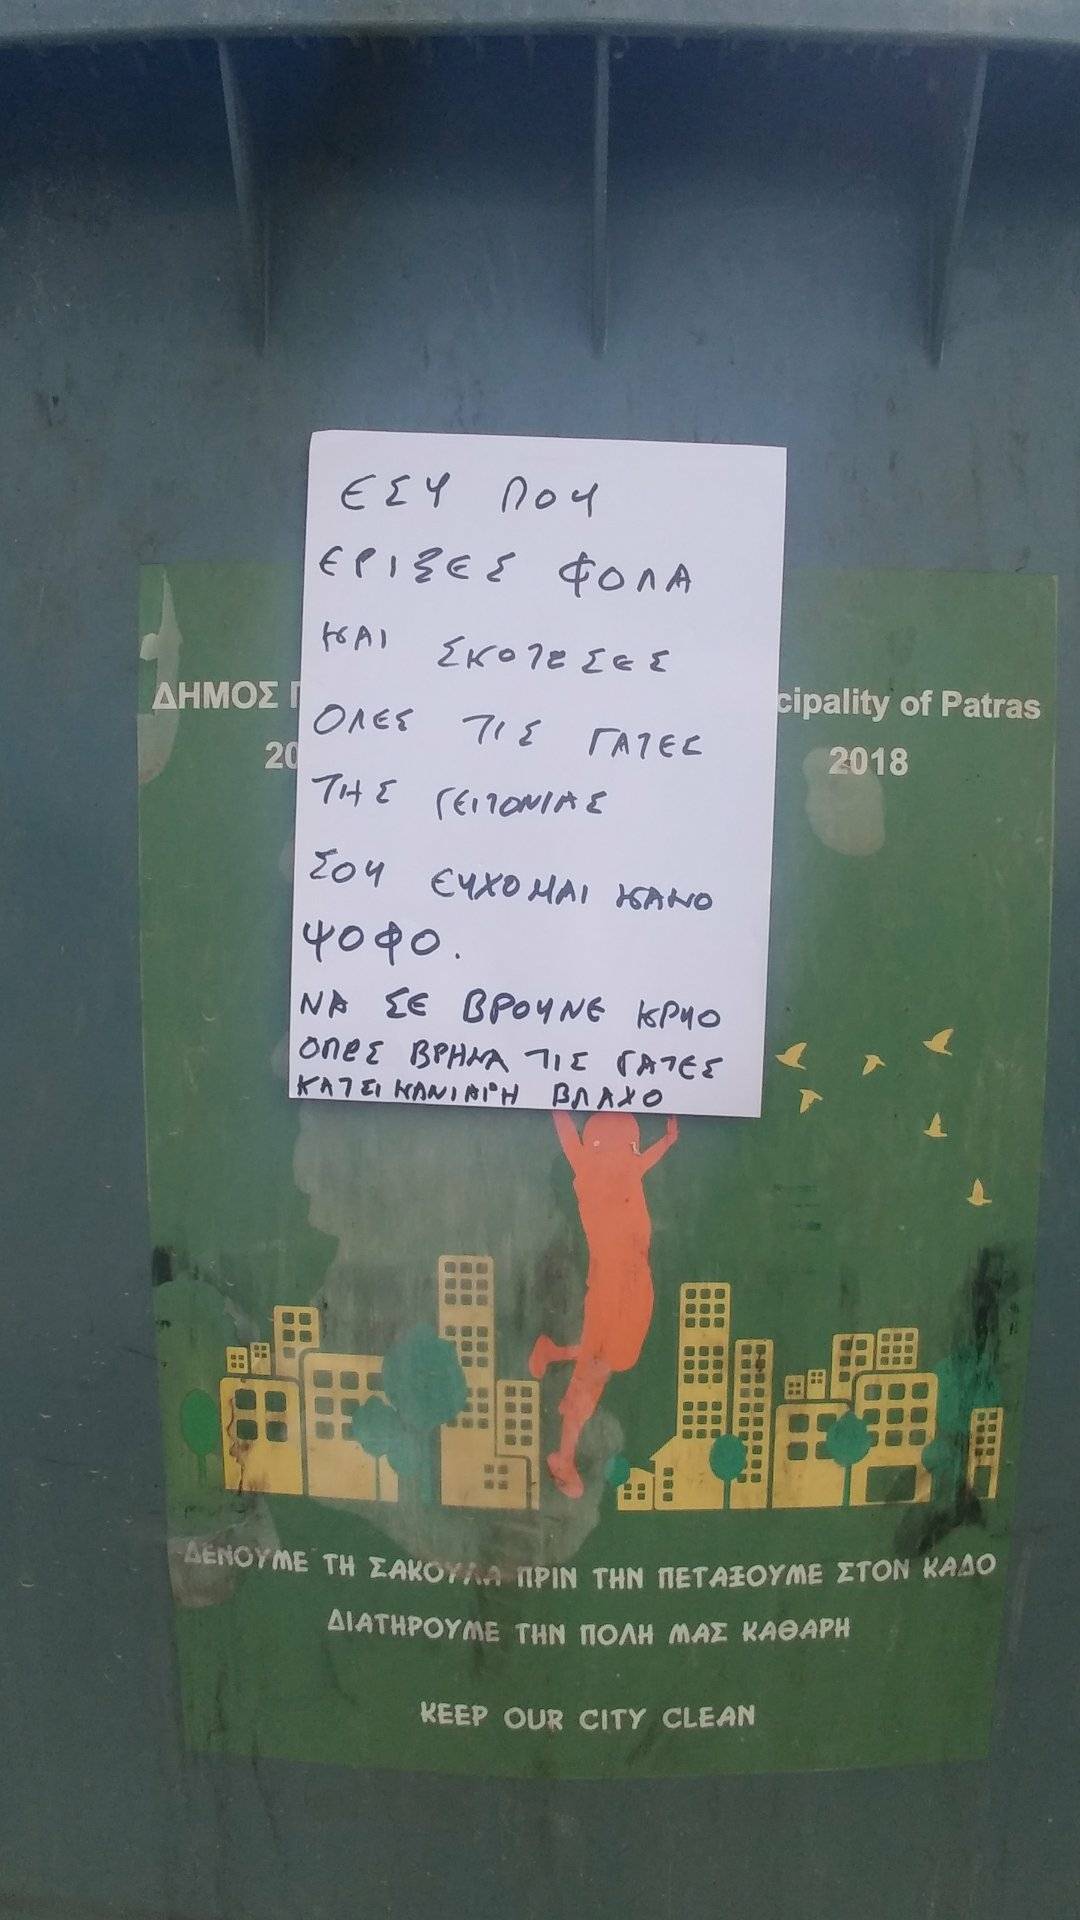 ΕΣΥ ΠΟΥ
ΕΡΙΞΕΣ ΦΟΛΑ
ΚΑΙ ΣΚΟΤΕΣΕΣ
ΟΛΕΣ ΤΙΣ ΓΑΤΕΣ
ΤΗΣ ΓΕΙΤΟΝΙΑΣ
ΣΟΥ ΕΥΧΟΜΑΙ ΚΑΝΟ
ΨΟΦΟ.
ΝΑ ΣΕ ΒΡΟΥΝΕ ΚΡΥΟ
ΟΠΕΣ ΒΡΗΚΑ ΤΙΣ ΓΑΤΕΣ
ΚΑΤΣΙΚΑΝΙΑΡΗ ΒΛΑΧΟ
ΔΗΜΟΣ Π
cipality of Patras
20
2018
ΔΕΝΟΥΜΕ ΤΗ ΣΑΚΟΥΛΑ ΠΡΙΝ ΤΗΝ ΠΕΤΑΞΟΥΜΕ ΣΤΟΝ ΚΑΔΟ
ΔΙΑΤΗΡΟΥΜΕ ΤΗΝ ΠΟΛΗ ΜΑΣ ΚΑΘΑΡΗ
KEEP OUR CITY CLEAN